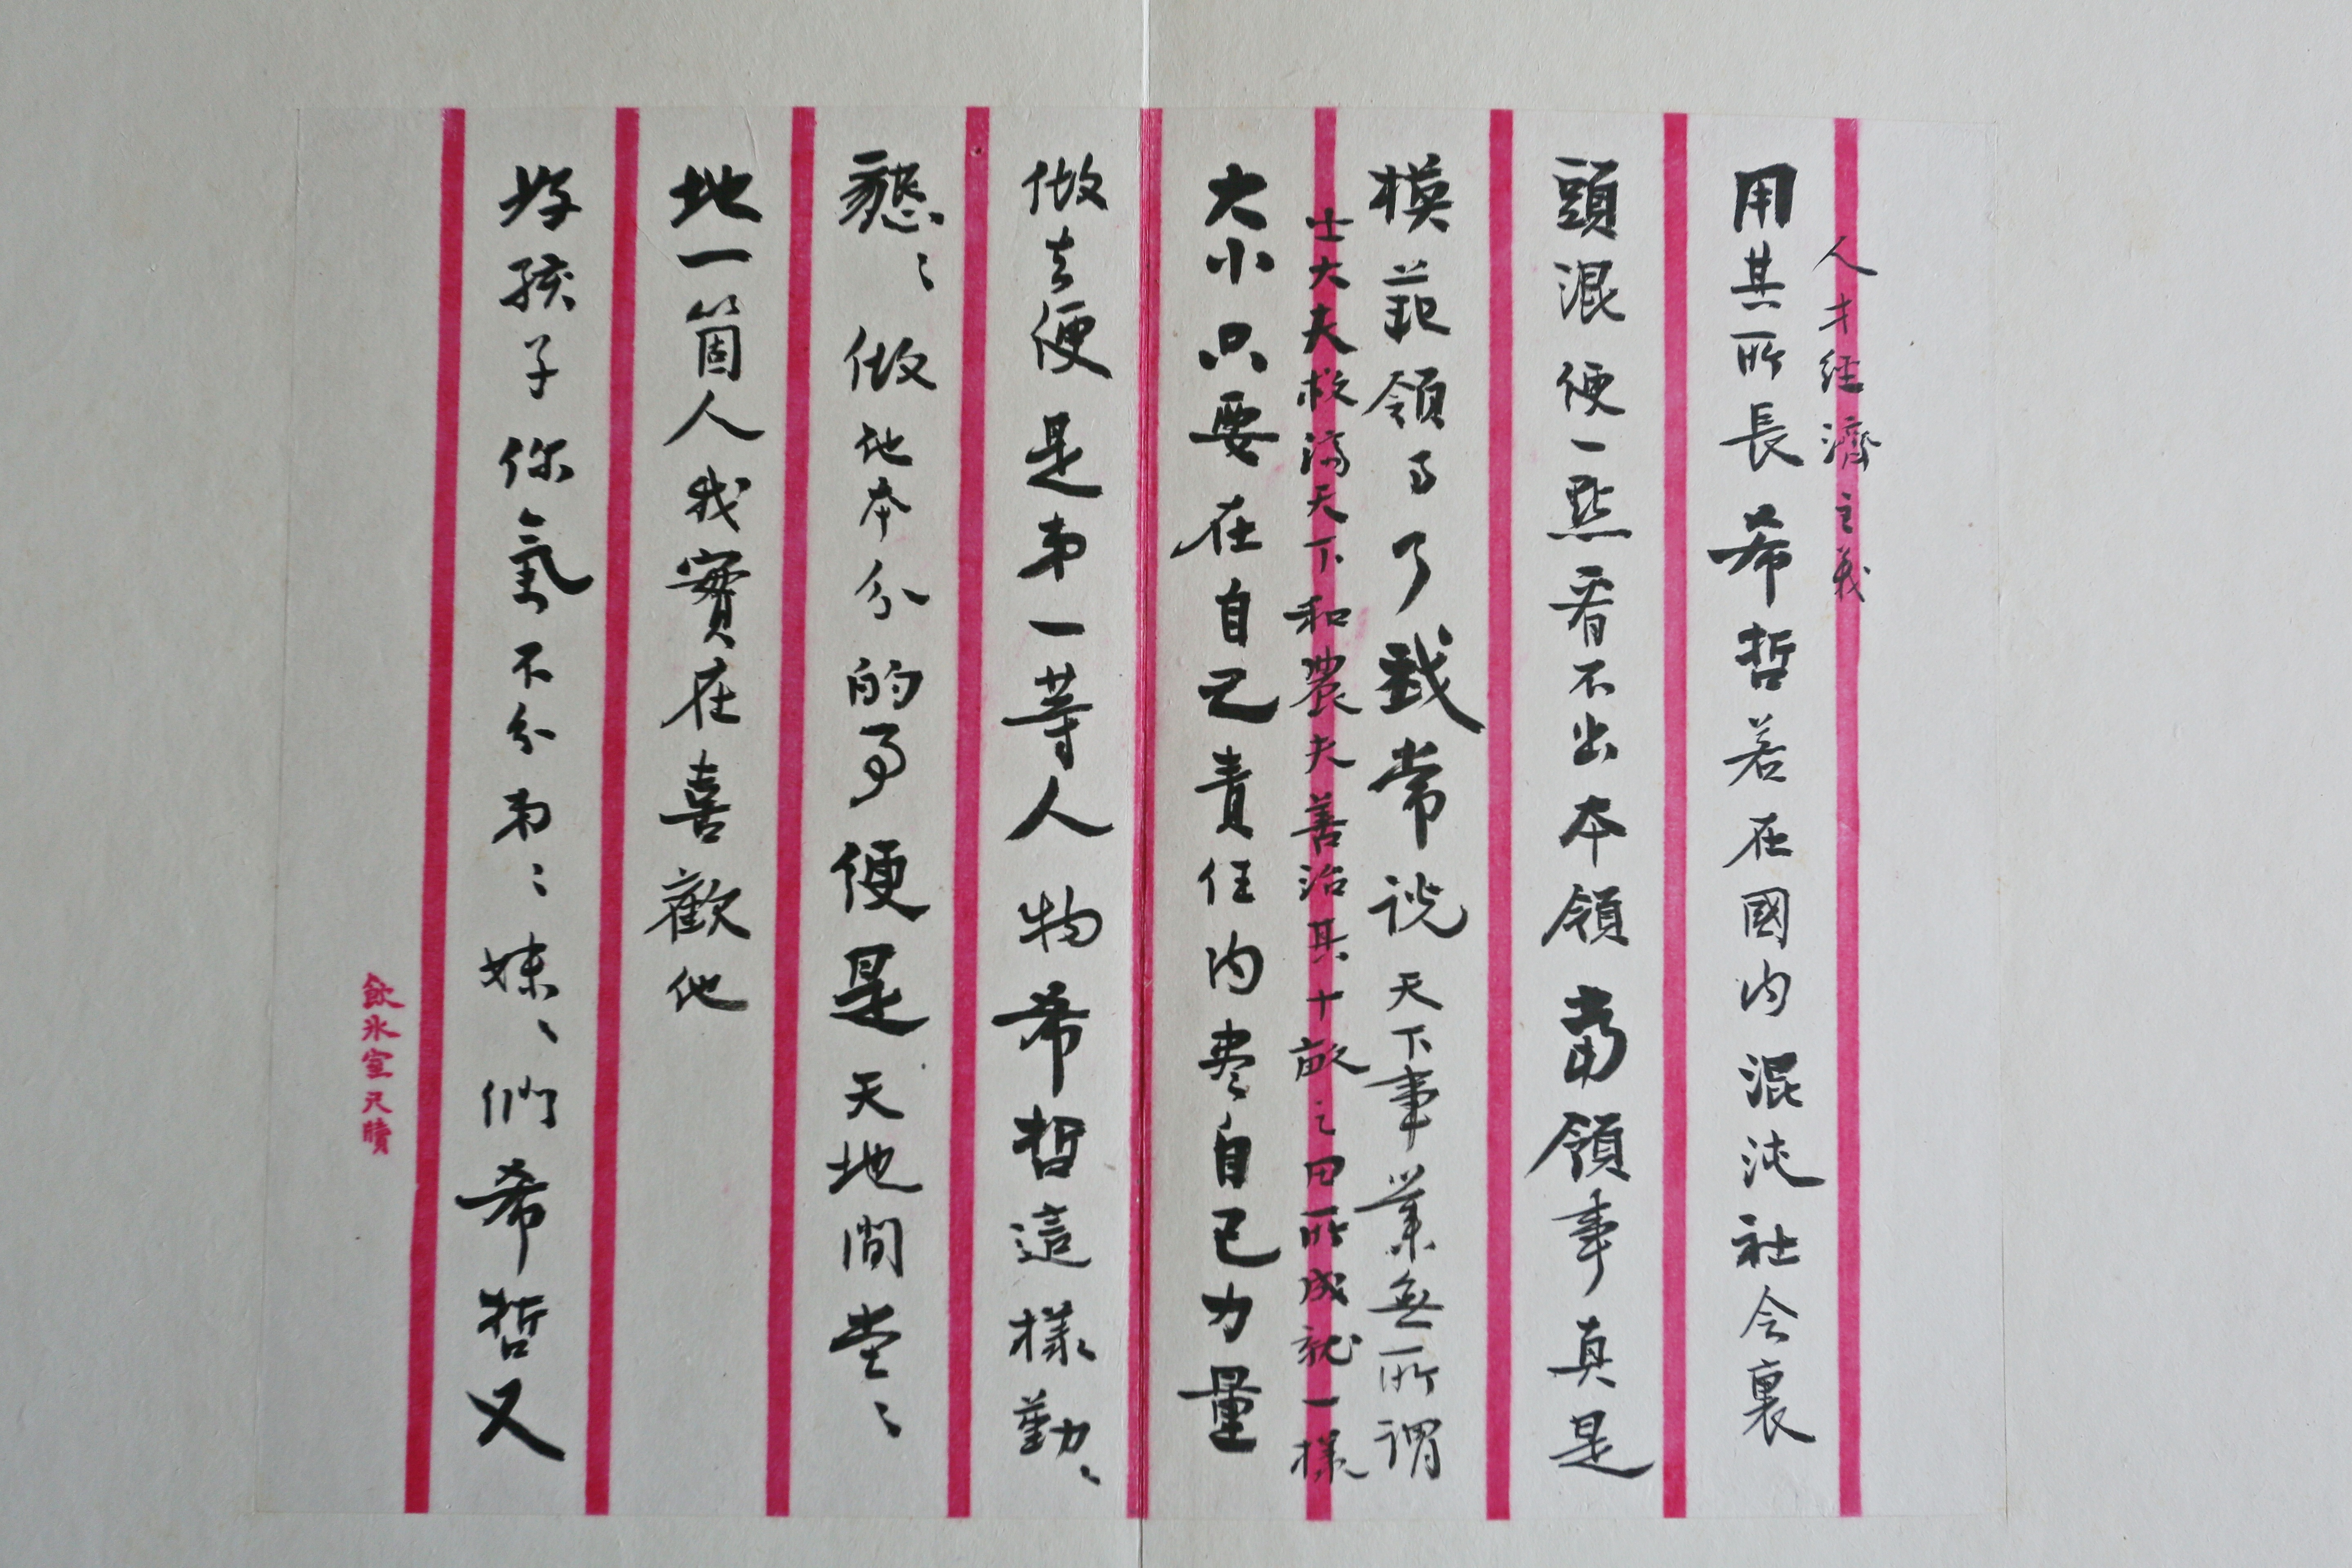 人才經濟主義
用其所長希哲若在國內混沌社会裏
頭混便一點看不出本領當領事真是
模範領事了我常說天下事業無所謂
士大夫救濟天下和農夫善治其十畝之田所成就一樣
大小只要在自己責任內尽自己力量
做去便是第一等人物希哲這樣勤〻
懇〻做他本分的事便是天地間堂〻
地一箇人我實在喜歡他
好孩子你氣不分弟〻妹〻們希哲又
飲冰室尺牘